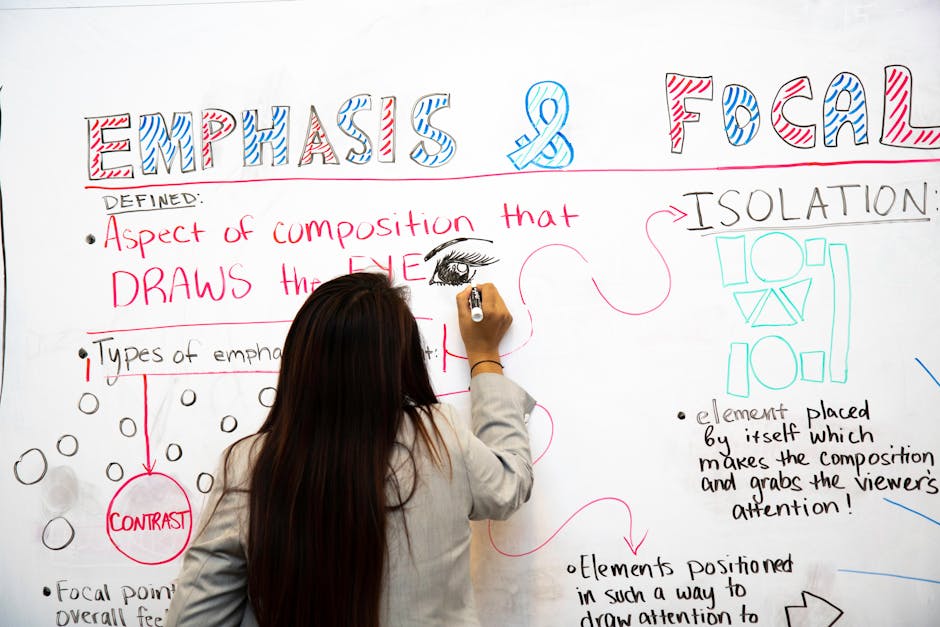 EMPHASIS & FOCAL
DEFINED:
• Aspect of composition that
DRAWS the EYE
• Types of empha
CONTRAST
• Focal poin
overall fee
ISOLATION:
• element placed
by itself which
makes the composition
and grabs the viewer's
attention!
• Elements positioned
in such a way to
draw attention to